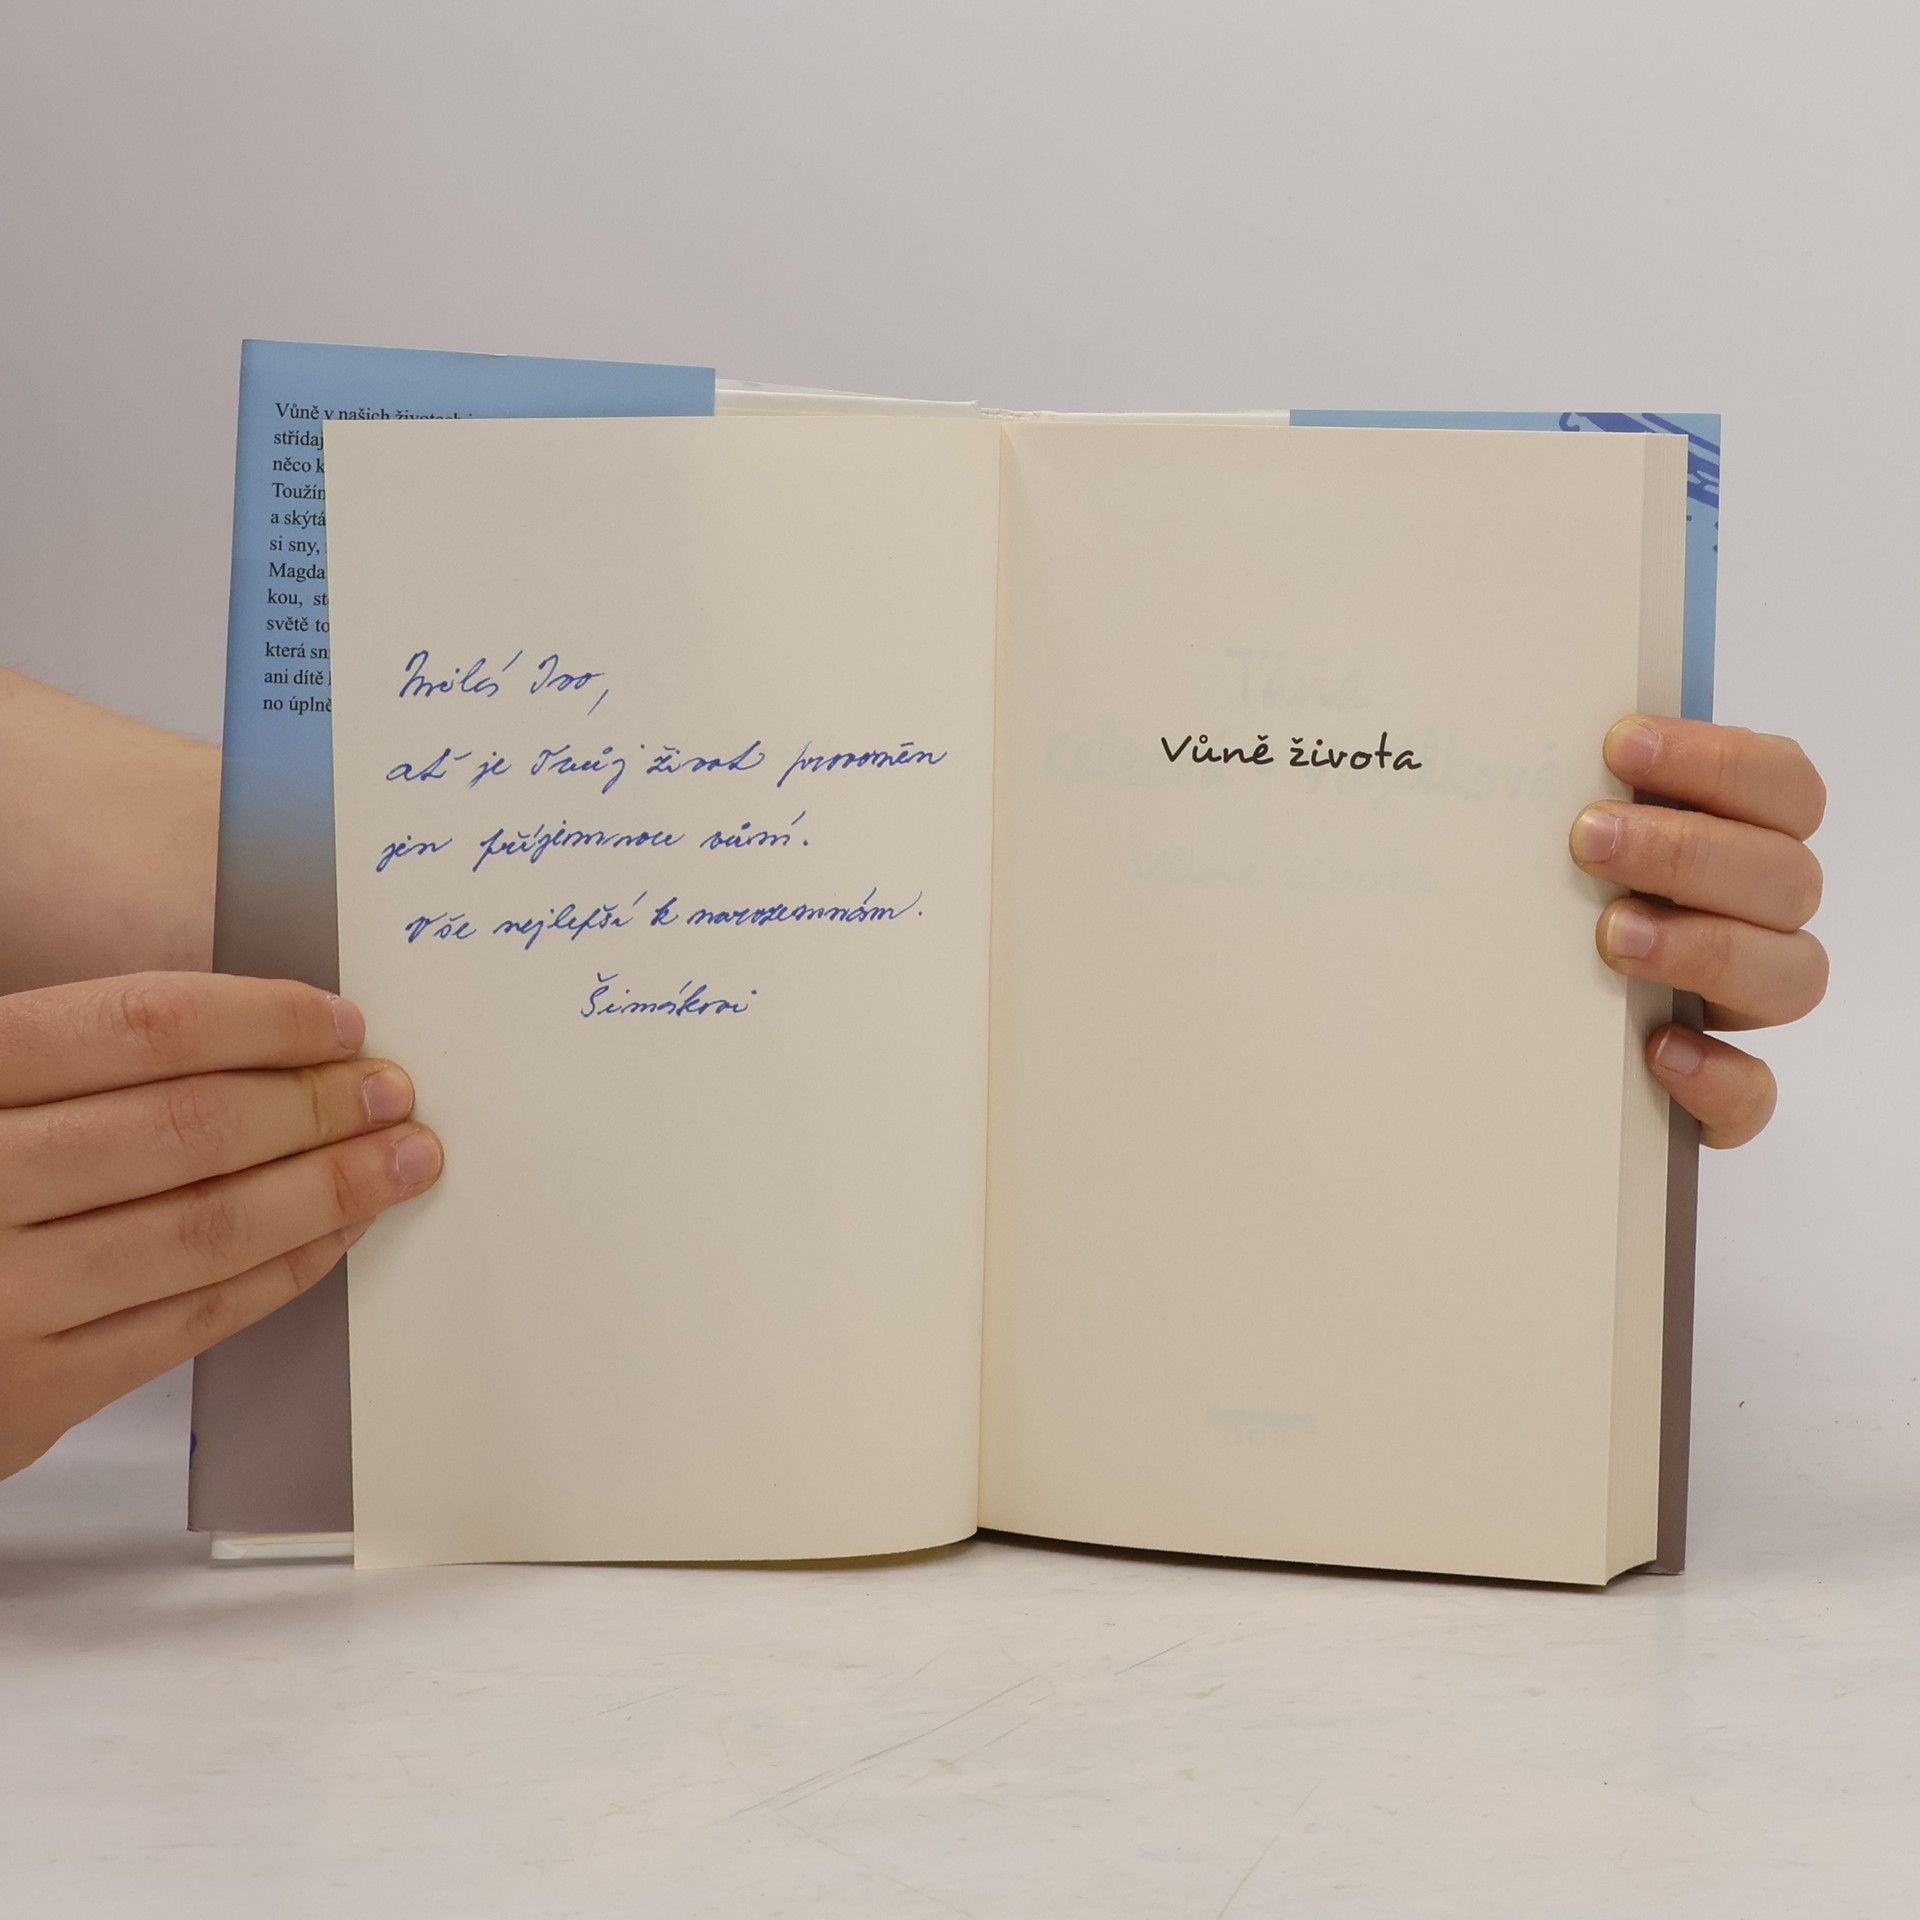 Vůně v našich životech
střídaj
něco k
Toužín
a skýtá
si sny,
Magda
kou, st
světě to
která sn
ani dítě
no úplně
Milá Ivo,
ať je Tvůj život provoněn
jen příjemnou vůní.
Vše nejlepší k narozeninám.
Šimákovi
Vůně života
Táňa
Vůně života